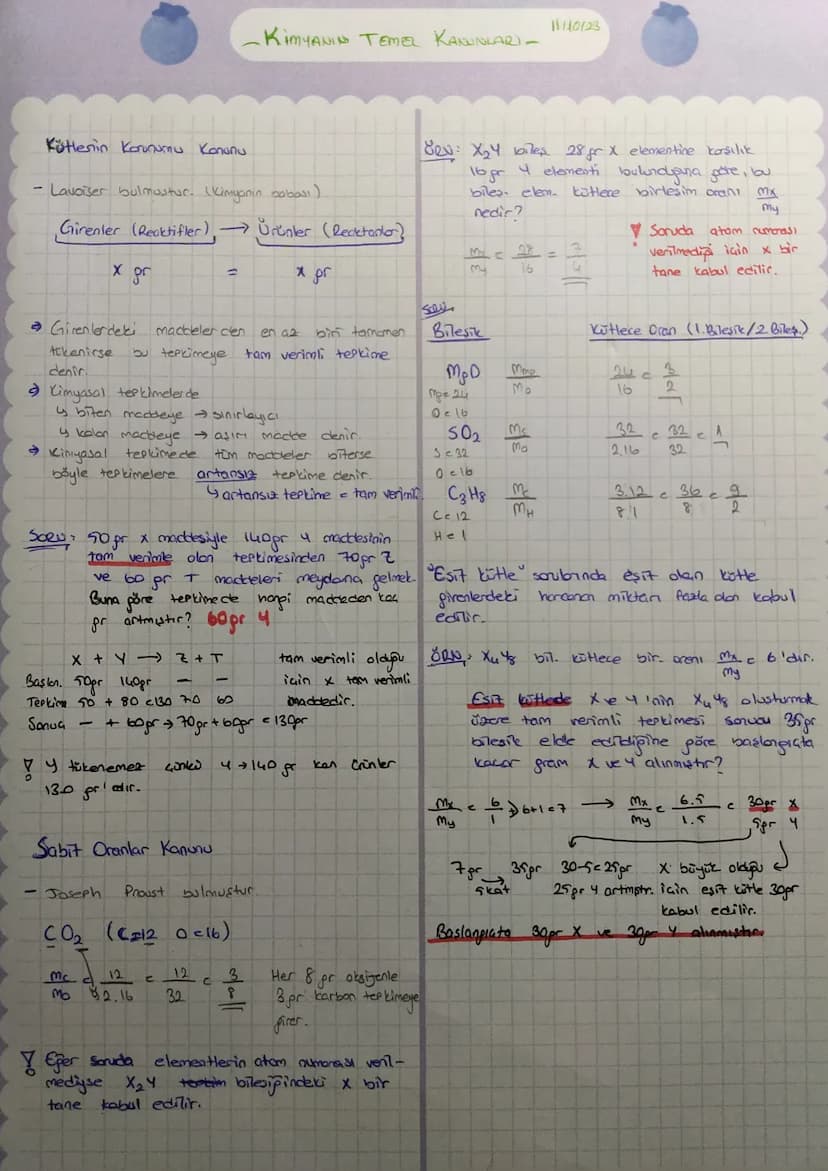 - KİMYANIN TEMEL KANUNLARI -
11/10/23
Kütlenin Korunumu Kanunu
- Lavoiser bulmuştur. (Kimyanın babası)
Girenler (Reaktifler) → Ürünler (Reaktanlar)
x gr = x gr
→ Girenlerdeki maddelerden en az biri tamamen
tükenirse bu tepkimeye tam verimli tepkime
denir.
→ Kimyasal tepkimelerde
↳ biten maddeye → sınırlayıcı
↳ kalan maddeye → aşırı madde denir.
→ Kimyasal tepkimede tüm maddeler biterse
böyle tepkimelere artansız tepkime denir.
↳ artansız tepkime = tam verimli
SORU: 50 gr X maddesiyle 140 gr Y maddesinin
tam verimle olan tepkimesinden 70 gr Z
ve 60 gr T maddeleri meydana gelmek-
Buna göre tepkimede hangi maddeden kaç
gr artmıştır? 60gr Y
X + Y → Z + T tam verimli olduğu
Başlan. 50gr 140gr - - için x tam verimli
Tepkime 50 + 80 = 130 70 60 maddedir.
Sonuç - + 60gr → 70gr + 60gr = 130gr
! Y tükenemez çünkü Y → 140 gr ken ürünler
130 gr'dır.
Sabit Oranlar Kanunu
- Joseph Proust bulmuştur.
CO₂ (C=12 O=16)
mc/mo = 12/2.16 = 12/32 = 3/8 Her 8 gr oksijenle
3 gr karbon tepkimeye
girer.
! Eğer soruda elementlerin atom numarası veril-
mediyse X₂Y bileşiğindeki X bir
tane kabul edilir.
ÖRN: X₂Y bileş. 28 gr X elementine karşılık
16 gr Y elementi bulunduğuna göre, bu
bileş. elem. kütlece birleşim oranı mx/my
nedir?
! Soruda atom numarası
verilmediği için x bir
tane kabul edilir.
mx/my = 28/16 = 7/4
Bileşik Kütlece Oran (1.Bileşik/2.Bileş.)
MgO mMg/mO 24/16 = 3/2
Mg=24
O=16
SO₂ 32/2.16 = 32/32 = 1
S=32
O=16
C₃H₈ mC/mH 3.12/8.1 = 36/8 = 9/2
C=12
H=1
"Eşit kütle" sorularında eşit olan kütle
girenlerdeki harcanan miktarı fazla olan kabul
edilir.
ÖRN: X₄Y₈ bil. kütlece bir. oranı mx/my = 6'dır.
Eşit kütlede X ve Y'nin X₄Y₈ oluşturmak
üzere tam verimli tepkimesi sonucu 35gr
bileşik elde edildiğine göre başlangıçta
kaçar gram X ve Y alınmıştır?
mx/my = 6/1 } 6+1=7 → mx/my = 6.5/1.5 = 30gr/5gr X Y
7gr → 35gr 30-5=25gr X büyük olduğu
5kat 25gr Y artmıştır. için eşit kütle 30gr
kabul edilir.
Başlangıçta 30gr X ve 30gr Y alınmıştır.